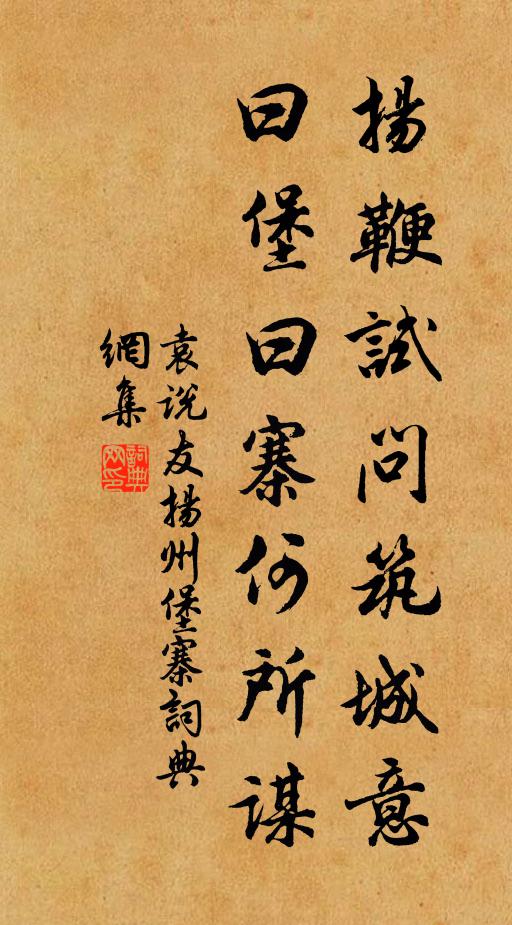 揚鞭試問筑城意
曰堡曰寨何所謀
袁说友揚州堡寨詞典
網集
詞典
网印